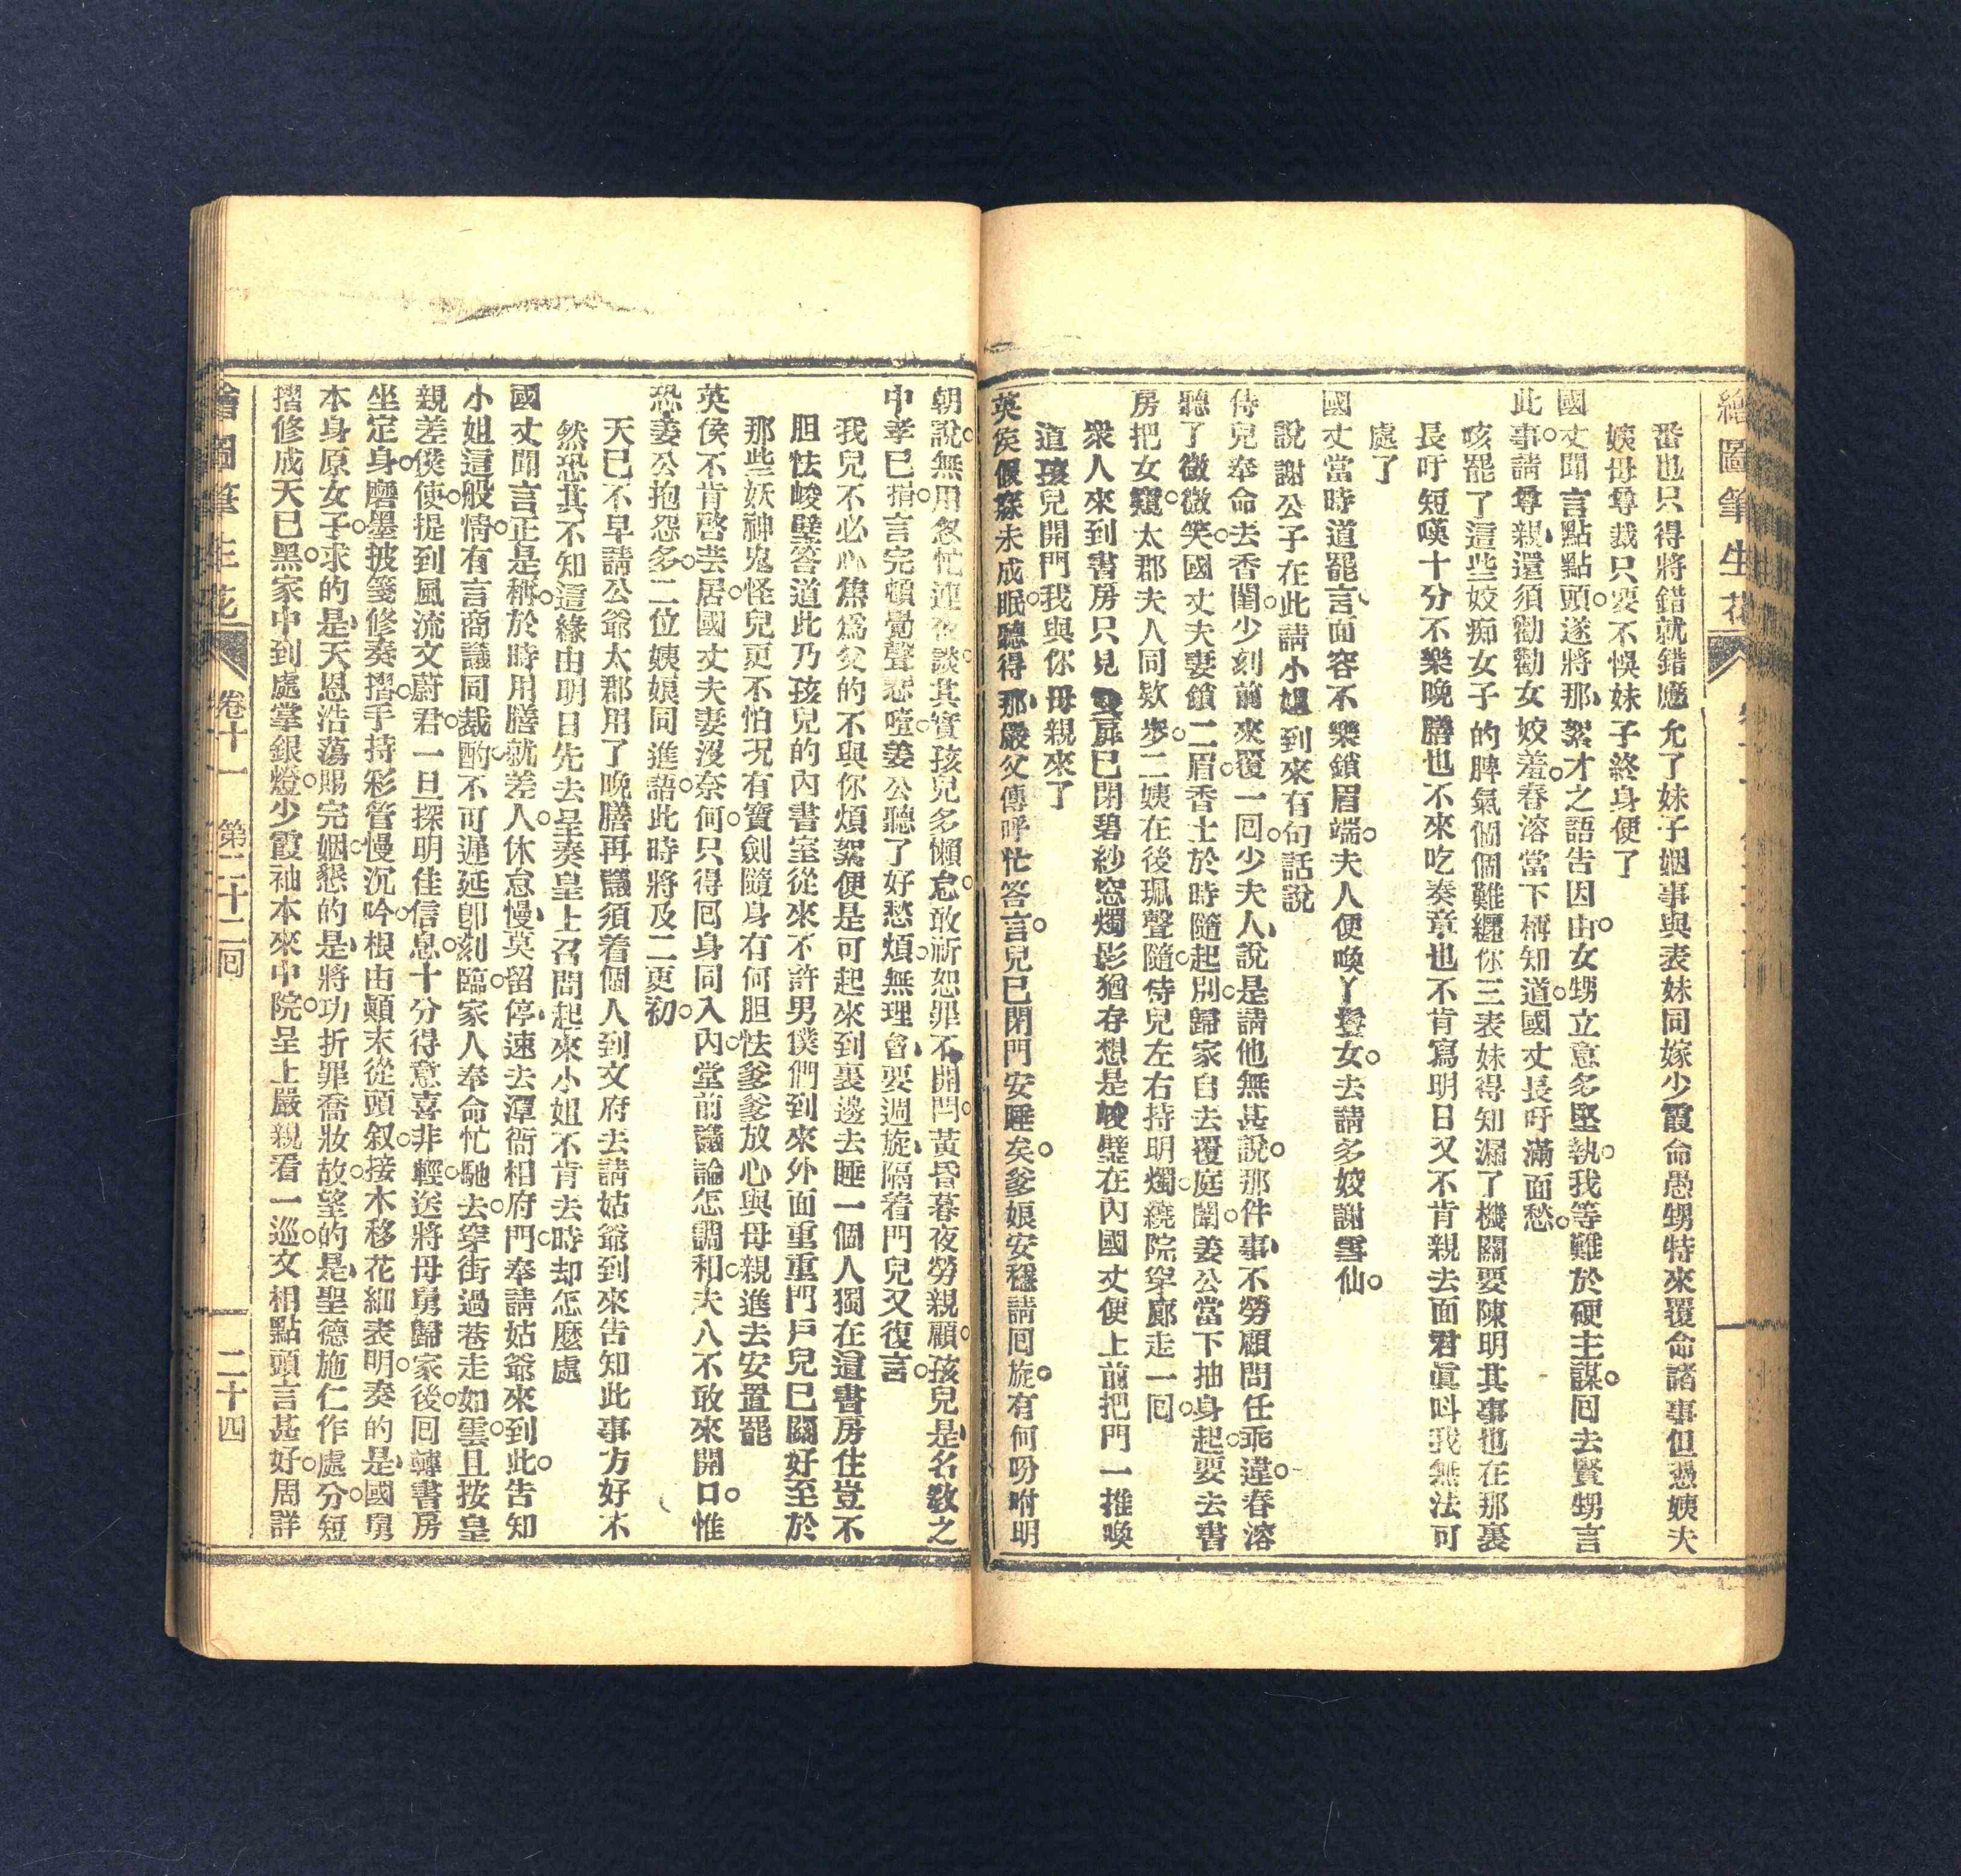 繪圖筆生花
番也只得將錯就錯應允了妹子姻事與表妹同嫁少霞命愚甥特來覆命諸事但憑姨夫
姨母尊裁只要不悞妹子終身便了
國丈聞言點點頭。遂將那、絮才之語告因由。女甥立意多堅執。我等難於硬主謀。回去賢甥言
此事。請尊親、還須勸勸女姣羞。春溶當下稱知道。國丈長吁滿面愁。
咳罷了這些姣痴女子的脾氣個個難纏你三表妹得知漏了機關要陳明其事也在那裏
長吁短嘆十分不樂晚膳也不來吃奏章也不肯寫明日又不肯親去面君眞呌我無法可
處了
國丈當時道罷言、面容不樂鎖眉端。夫人便喚丫鬟女。去請多姣謝雪仙。
說謝公子在此請小姐到來有句話說
侍兒奉命去香閨。少刻前來覆一回。少夫人、說是請他無甚說。那件事、不勞顧問任乖違。春溶
聽了微微笑。國丈夫妻鎖二眉。香士於時隨起別。歸家自去覆庭闈。姜公當下抽身起。要去書
房把女窺。太郡夫人同欵步。二姨在後珮聲隨。侍兒左右持明燭。繞院穿廊走一回。
衆人來到書房只見雙扉已閉碧紗窓燭影猶存想是峻璧在內國丈便上前把門一推喚
道孩兒開門我與你母親來了
英侯假寐未成眠。聽得那、嚴父傳呼忙答言。兒已閉門安睡矣。爹娘安穩請回旋。有何吩咐明
朝說。無用忽忙連夜談。其實孩兒多懶怠。敢祈恕罪不開閂。黃昏暮夜勞親顧。孩兒是、名敎之
中孝已捐。言完頓覺聲悲噎。姜公聽了好愁煩。無理會、要週旋、隔着門兒又復言。
我兒不必心焦爲父的不與你煩絮便是可起來到裏邊去睡一個人獨在這書房住豈不
胆怯峻璧答道此乃孩兒的內書室從來不許男僕們到來外面重重門戶兒已關好至於
那些妖神鬼怪兒更不怕况有寶劍隨身有何胆怯爹爹放心與母親進去安置罷
英侯不肯啓芸居。國丈夫妻沒奈何。只得囘身同入內。堂前議論怎調和。夫人不敢來開口。惟
恐姜公抱怨多。二位姨娘同進語。此時將及二更初。
天已不早請公爺太郡用了晚膳再議須着個人到文府去請姑爺到來告知此事方好不
然恐其不知這緣由明日先去呈奏皇上召問起來小姐不肯去時却怎麼處
國丈聞言正是稱。於時用膳就差人。休怠慢、莫留停、速去潭衙相府門。奉請姑爺來到此。告知
小姐這般情。有言商議同裁酌。不可遲延卽刻臨。家人奉命忙馳去。穿街過巷走如雲。且按皇
親差僕使。提到風流文蔚君。一旦探明佳信息。十分得意喜非輕。送將母舅歸家後。回轉書房
坐定身。磨墨披箋修奏摺。手持彩管慢沉吟。根由顚末從頭叙。接木移花細表明。奏的是、國舅
本身原女子。求的是、天恩浩蕩賜完姻。懇的是、將功折罪喬妝故。望的是、聖德施仁作處分。短
摺修成天已黑。家中到處掌銀燈。少霞袖本來中院。呈上嚴親看一巡。文相點頭言甚好。周詳
繪圖筆生花 卷十一 第二十二回 二十四